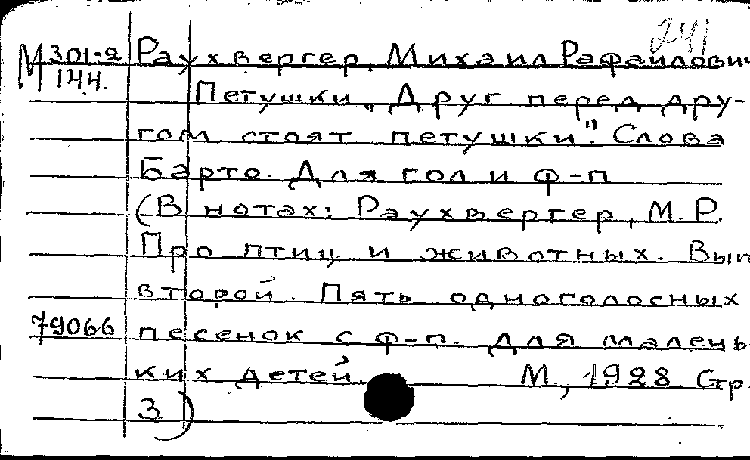 241
М 301-2 Раухвергер, Михаил Рафаилович
144. Петушки „Друг перед дру-
гом стоят петушки". Слова
Барто. Для гол и ф-п
(В нотах: Раухвергер, М. Р.
Про птиц и животных. Вып
второй. Пять одноголосных
79066 песенок с ф-п. для малень
ких детей М, 1928 Стр.
3)